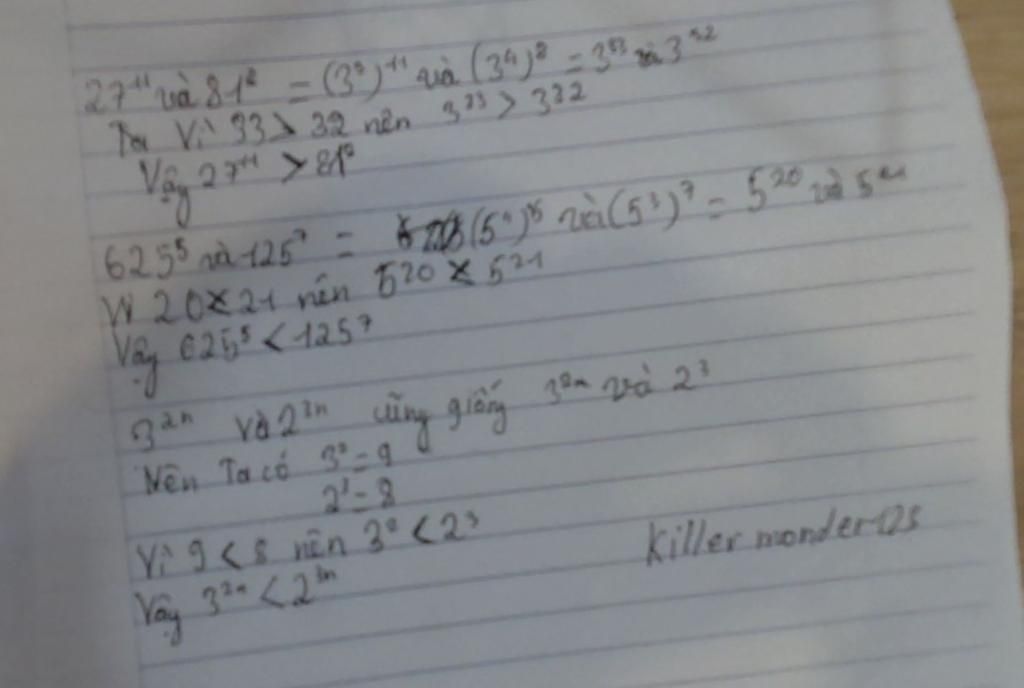 27¹¹ và 81⁸ = (3³)¹¹ và (3⁴)⁸ = 3³³ và 3³²
Ta Vì 33 > 32 nên 3³³ > 3³²
Vậy 27¹¹ > 81⁸
625⁵ và 125⁷ = (5⁴)⁵ và (5³)⁷ = 5²⁰ và 5²¹
Vì 20 < 21 nên 5²⁰ < 5²¹
Vậy 625⁵ < 125⁷
3²ⁿ và 2³ⁿ cũng giống 3²ⁿ và 2³
Nên Ta có 3² = 9
2³ = 8
Vì 9 < 8 nên 3² < 2³
Vậy 3²ⁿ < 2³ⁿ
Killer monder123